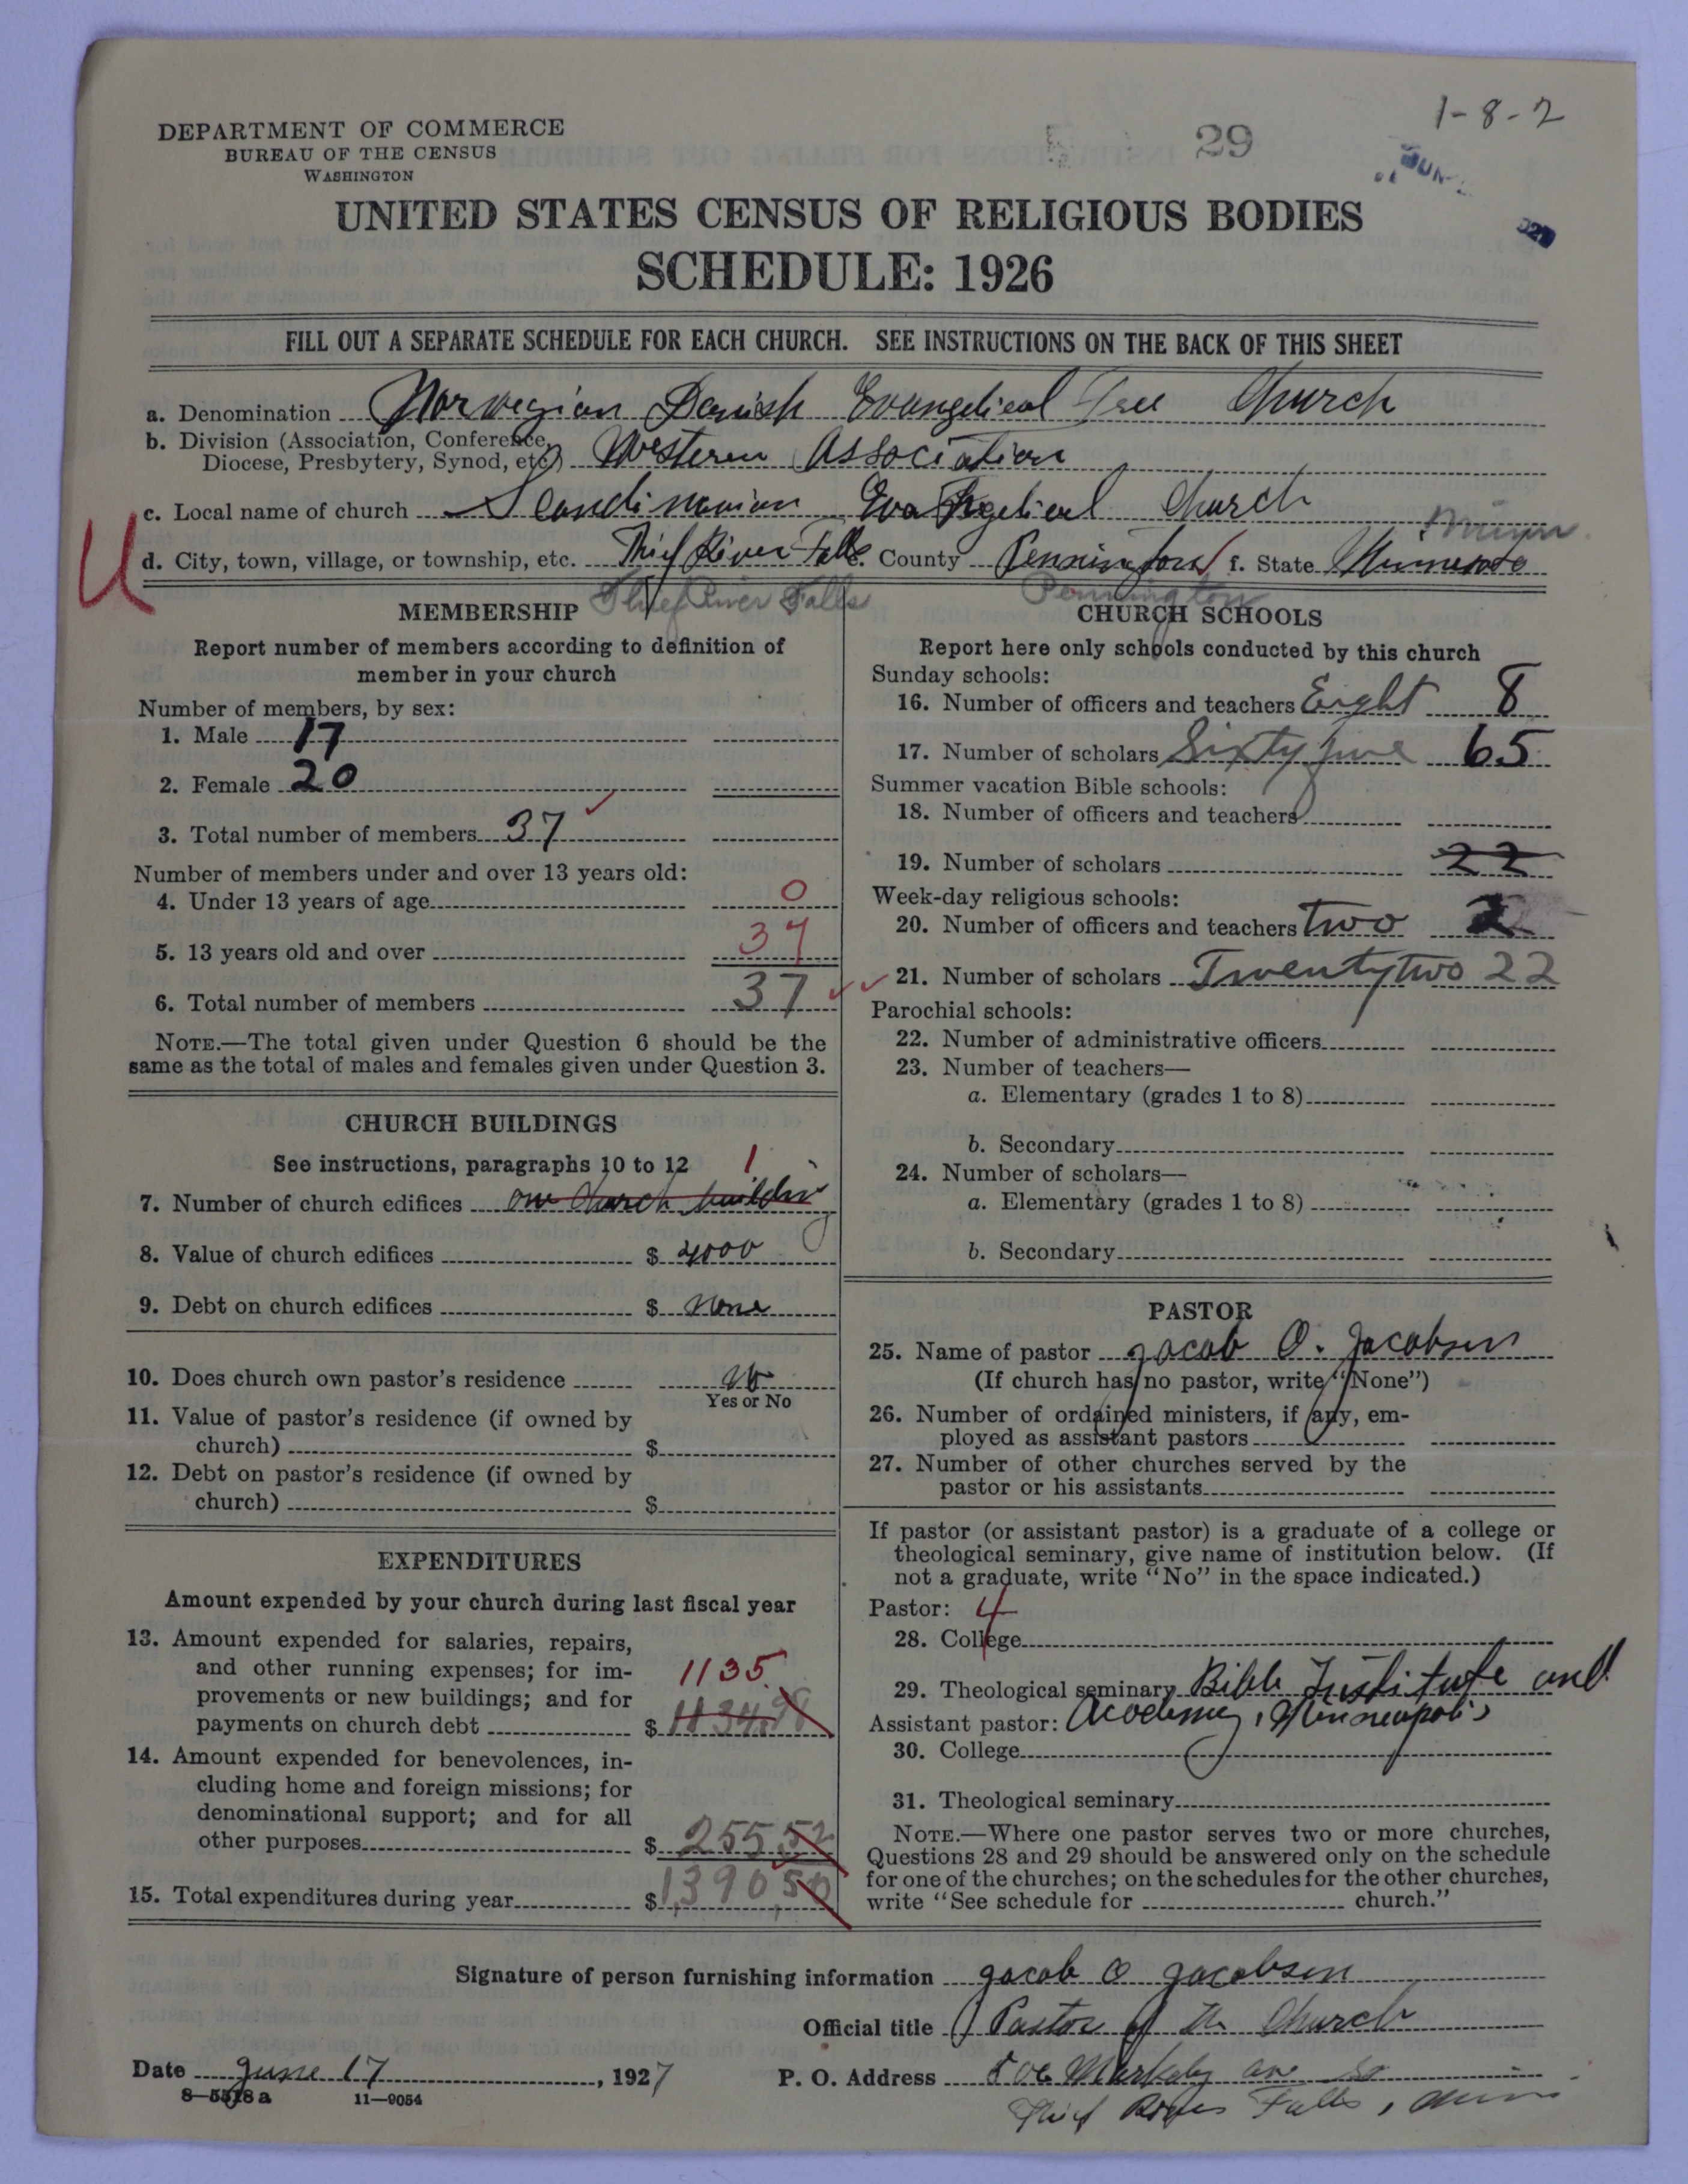 1-8-2
DEPARTMENT OF COMMERCE
BUREAU OF THE CENSUS
WASHINGTON
29
UNITED STATES CENSUS OF RELIGIOUS BODIES
SCHEDULE: 1926
FILL OUT A SEPARATE SCHEDULE FOR EACH CHURCH. SEE INSTRUCTIONS ON THE BACK OF THIS SHEET
a. Denomination Norwegian Danish Evangelical Free Church
b. Division (Association, Conference,
Diocese, Presbytery, Synod, etc.) Western Association
c. Local name of church Scandinavian Evangelical Church
Minn.
d. City, town, village, or township, etc. Thief River Falls e. County Pennington f. State Minnesota
Thief River Falls Pennington
U
MEMBERSHIP
Report number of members according to definition of
member in your church
Number of members, by sex:
1. Male 17
2. Female 20
3. Total number of members 37
Number of members under and over 13 years old:
4. Under 13 years of age 0
5. 13 years old and over 37
6. Total number of members 37
NOTE.—The total given under Question 6 should be the
same as the total of males and females given under Question 3.
CHURCH BUILDINGS
See instructions, paragraphs 10 to 12 1
7. Number of church edifices one church building
8. Value of church edifices $ 4000
9. Debt on church edifices $ none
10. Does church own pastor's residence no
Yes or No
11. Value of pastor's residence (if owned by
church) $
12. Debt on pastor's residence (if owned by
church) $
EXPENDITURES
Amount expended by your church during last fiscal year
13. Amount expended for salaries, repairs,
and other running expenses; for im-
1135
provements or new buildings; and for
payments on church debt $ 1134.98
14. Amount expended for benevolences, in-
cluding home and foreign missions; for
denominational support; and for all
other purposes $ 255.52
15. Total expenditures during year $ 1,390.50
CHURCH SCHOOLS
Report here only schools conducted by this church
Sunday schools:
16. Number of officers and teachers Eight 8
17. Number of scholars Sixty five 65
Summer vacation Bible schools:
18. Number of officers and teachers
19. Number of scholars 22
Week-day religious schools:
20. Number of officers and teachers two 2
21. Number of scholars Twenty two 22
Parochial schools:
22. Number of administrative officers
23. Number of teachers—
a. Elementary (grades 1 to 8)
b. Secondary
24. Number of scholars—
a. Elementary (grades 1 to 8)
b. Secondary
PASTOR
25. Name of pastor Jacob O. Jacobsen
(If church has no pastor, write "None")
26. Number of ordained ministers, if any, em-
ployed as assistant pastors
27. Number of other churches served by the
pastor or his assistants
If pastor (or assistant pastor) is a graduate of a college or
theological seminary, give name of institution below. (If
not a graduate, write "No" in the space indicated.)
Pastor: 4
28. College
29. Theological seminary Bible Institute and
Assistant pastor: Academy, Minneapolis
30. College
31. Theological seminary
NOTE.—Where one pastor serves two or more churches,
Questions 28 and 29 should be answered only on the schedule
for one of the churches; on the schedules for the other churches,
write "See schedule for church."
Signature of person furnishing information Jacob O Jacobsen
Official title Pastor of the Church
Date June 17, 1927 P. O. Address Markley ave so
8—5518a 11—9054
Thief River Falls, Minn